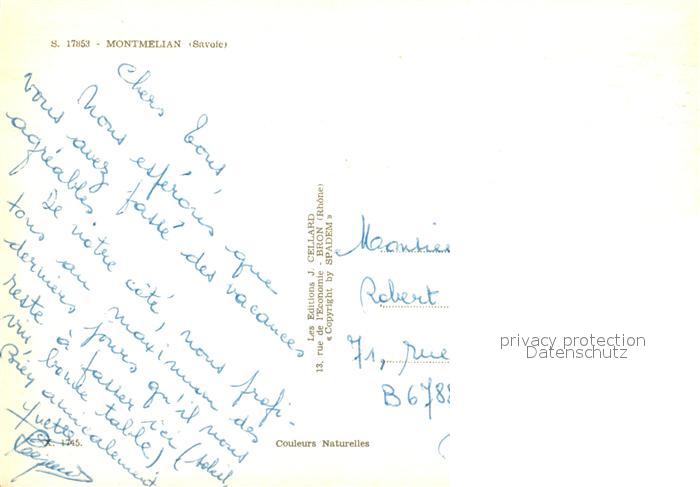 S. 17853 - MONTMELIAN (Savoie)
Chers tous,
Nous espérons que
vous avez passé des vacances
agréables.
De notre côté, nous profi-
tons au maximum des
derniers jours qu'il nous
reste à passer ici (soleil,
vin, bonne table)
Bien amicalement
Yvette
X. 1745.
Couleurs Naturelles
Les Editions J. CELLARD
13, rue de l'Economie - BRON (Rhône)
« Copyright by SPADEM »
Monsieu
Robert
71, rue
B678
privacy protection
Datenschutz